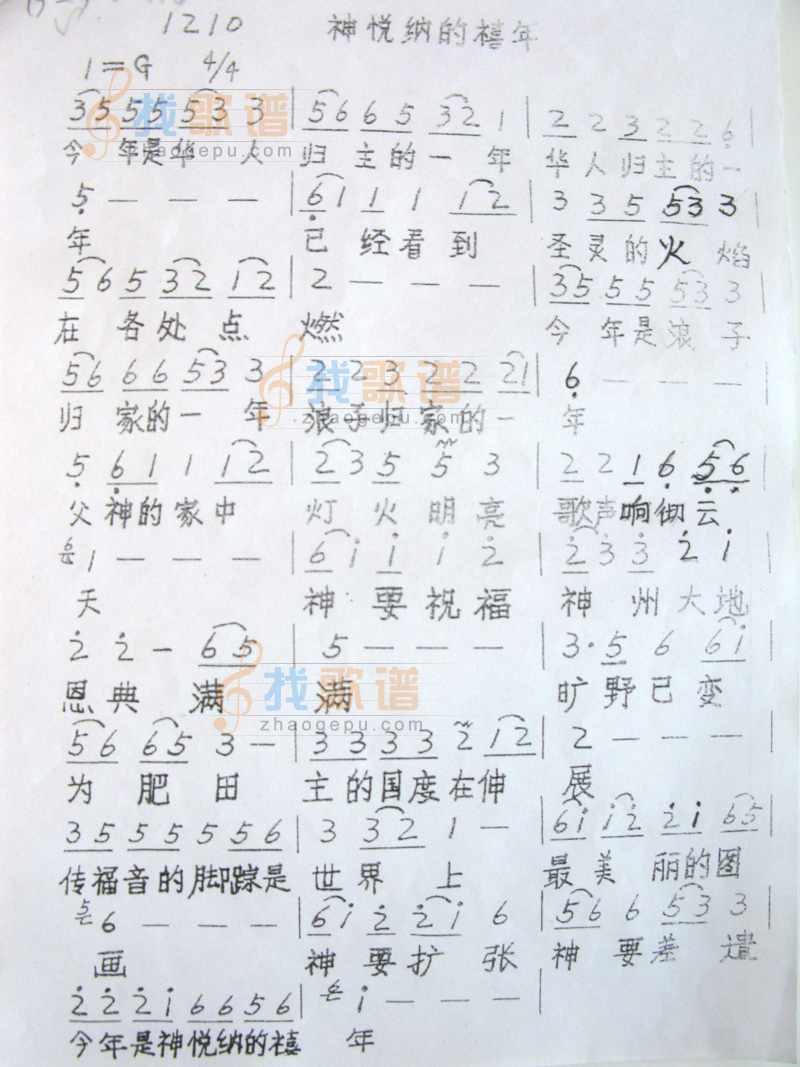 1210 神悦纳的禧年
1=G 4/4
35 55 53 3 | 56 6 5 32 1 | 2 2 3 2 2 6 |
今 年是华 人 归 主的一 年 华人归主的一
5 — — — | 61 1 1 12 | 3 35 53 3
年 已 经看到 圣灵的火 焰
56 5 32 12 | 2 — — — | 35 55 53 3
在 各处 点 燃 今 年是浪 子
56 66 53 3 | 2 2 3 2 2 21 | 6 — — — |
归 家的一 年 浪子归家的一 年
5 61 1 12 | 23 5 5 3 | 2 2 1 6 56
父神的家中 灯火明亮 歌声响彻云
6 1 — — — | 6i i i 2 | 23 3 2 i
天 神要祝福 神州大地
2 2 — 65 | 5 — — — | 3· 5 6 6i
恩典 满 满 旷野已变
56 65 3 — | 33 33 2 12 | 2 — — —
为 肥 田 主的国度在伸 展
35 55 55 56 | 3 32 1 — | 6i i2 2i 65
传福音的脚踪是 世界 上 最美 丽的图
5 6 — — — | 6i 2 2i 6 | 56 6 53 3 |
画 神要扩 张 神 要差 遣
22 2i 66 56 | 6 i — — — |
今年是神悦纳的禧 年
找歌谱
zhaogepu.com
找歌谱
zhaogepu.com
找歌谱
zhaogepu.com